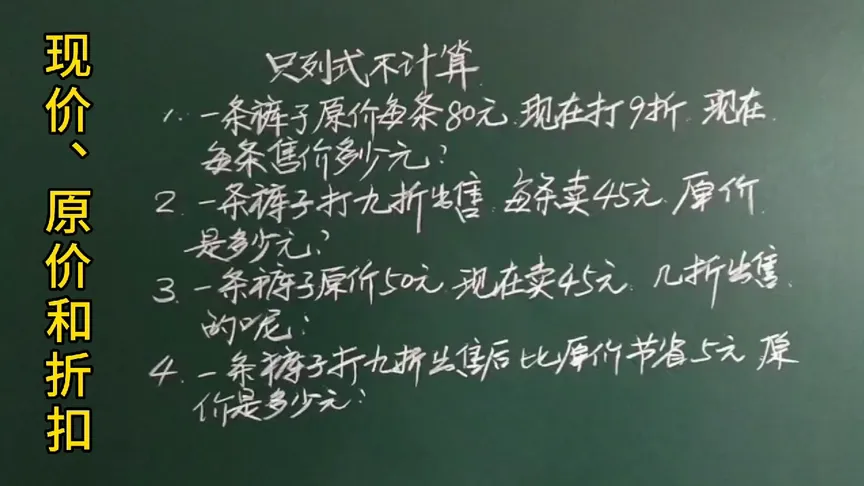 现价、原价和折扣
只列式不计算
1. 一条裤子原价每条80元.现在打9折.现在
每条售价多少元?
2. 一条裤子打九折出售.每条卖45元.原价
是多少元?
3. 一条裤子原价50元.现在卖45元.几折出售
的呢?
4. 一条裤子打九折出售后比原价节省5元.原
价是多少元?